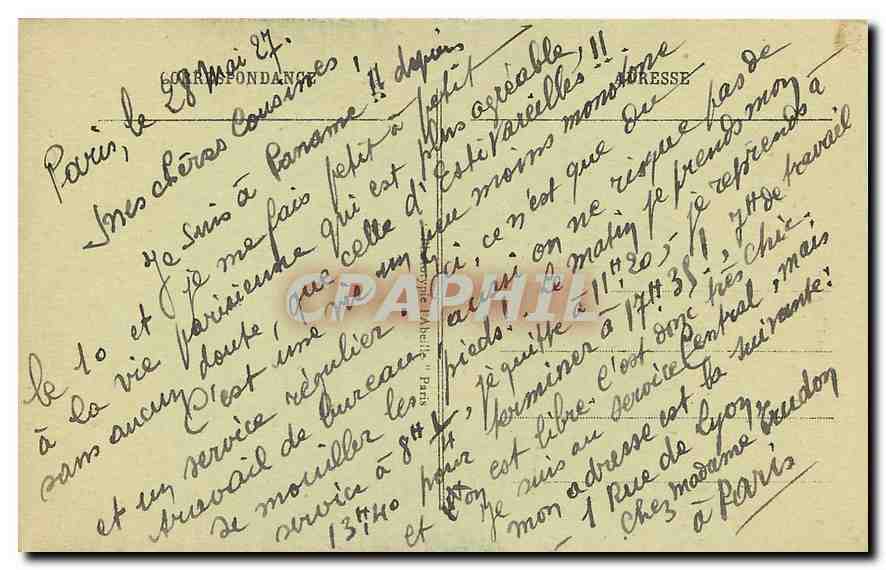 CORRESPONDANCE
ADRESSE
Paris, le 28 mai 27.
Mes chères Cousines,
Je suis à Paname!! depuis
le 10 et je me fais petit à petit
à la vie parisienne qui est plus agréable,
sans aucun doute, que celle d'Estivareilles!!
C'est une vie un peu moins monotone
et un service régulier. Ici, ce n'est que du
travail de bureau, aussi on ne risque pas de
se mouiller les pieds. Le matin je prends mon
service à 8H, je quitte à 11H20, je reprends à
13H40 pour terminer à 17H35!, 7H de travail
et on est libre. C'est donc très chic.
Je suis au service Central, mais
mon adresse est la suivante:
1 Rue de Lyon,
chez Madame Trudon
à Paris
Phototypie l'Abeille" Paris
CPAPHIL